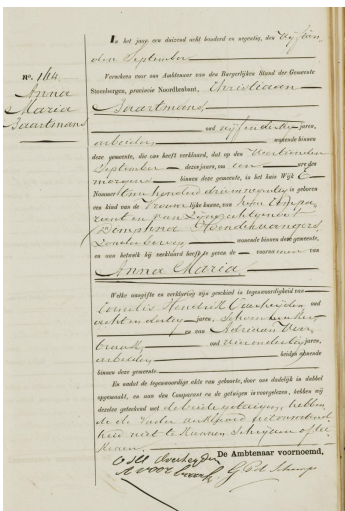 In het jaar een duizend acht honderd en negentig, den vijftien
den September
Nº. 164.
Anna
Maria
Baartmans
Verscheen voor ons Ambtenaar van den Burgerlijken Stand der Gemeente
Steenbergen, provincie Noordbrabant, Christiaan
Baartmans
oud vijfendertig jaren,
arbeider wonende binnen
deze gemeente, die ons heeft verklaard, dat op den veertienden
September dezes jaars, om een ure des
morgens binnen deze gemeente, in het huis Wijk E
Nommer honderd drieennegentig is geboren
een kind van de Vrouwelijke kunne, van hem Compa
rant en van zijne echtgenoot
Dimphna
zonder beroep wonende binnen deze gemeente,
en aan hetwelk hij verklaard heeft te geven de voornamen van
Anna Maria
Welke aangifte en verklaring zijn geschied in tegenwoordigheid van
Cornelis Hendrik oud
achtendertig jaren,
en van Adriaan Voor
braak, oud vierendertig jaren,
arbeider beiden wonende
binnen deze gemeente
En hebben wij daarvan de tegenwoordige akte van geboorte, door ons dadelijk in dubbel
opgemaakt, en aan den Comparant en de getuigen is voorgelezen, hebben wij
dezelve geteekend met de beide getuigen, hebben
de de Vader verklaard uit onwetend
heid niet te kunnen schrijven of tee
kenen.
De Ambtenaar voornoemd,
A voorbraak